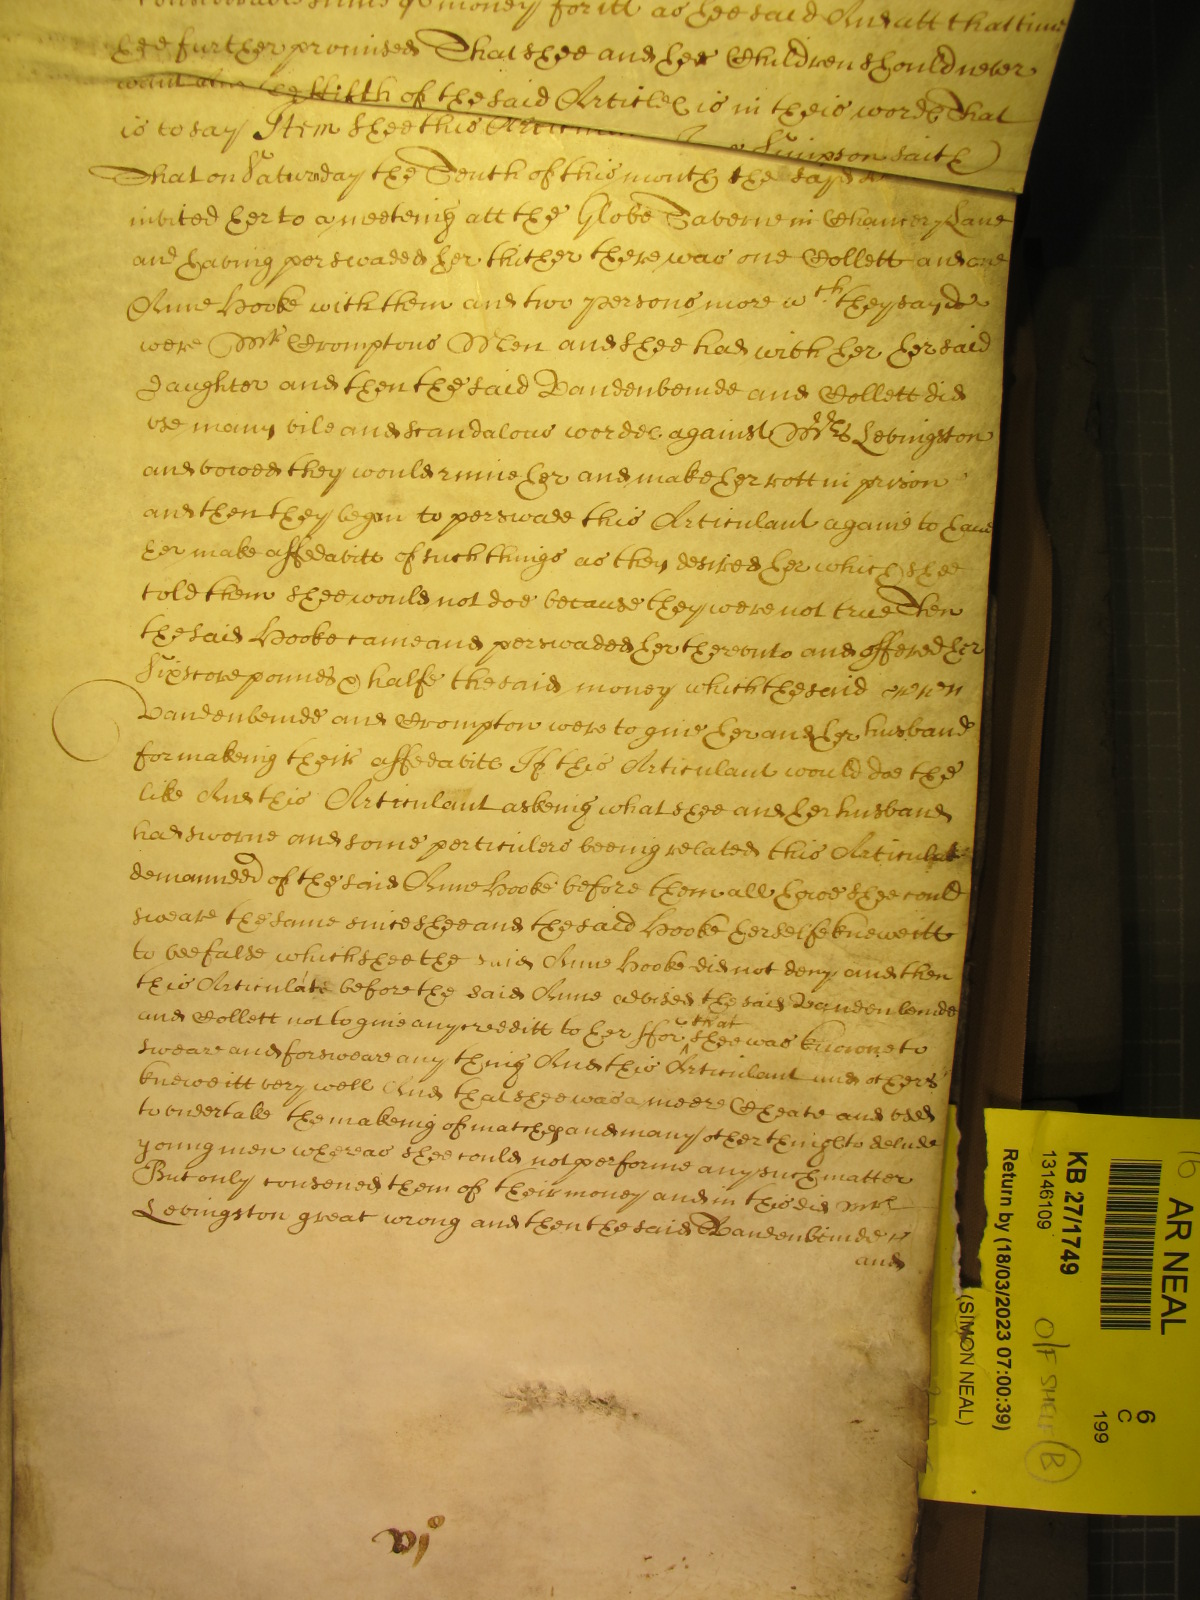 considerable sums of money for itt as hee said And att that time
hee further promised That shee and her Children should never
want the fifth of the said Articles is in theis wordes That
is to say Item shee this Simpson saith
That on Saturday the Tenth of this month the sayd
invited her to a meeteing att the Globe Taverne in Chancery Lane
and having perswaded her thither there was one Collett and one
Anne Hooke with them and two persons more wch they sayd
were Mr Cromptons Men and shee had with her her said
daughter and then the said Vandenbemde and Collett did
vse many vile and scandalous wordes against Mrs Levingston
and vowed they would ruine her and make her rott in prison
and then they began to perswade this Articulant againe to have
her make affedavitt of such things as they desired her which shee
told them shee would not doe because they were not true Then
the said Hooke came and perswaded her therevnto and offered her
Sixscore pounds & halfe the said money which the said
Vandenbemde and Crompton were to give her and her husband
for makeing their affedavitt If this Articulant would doe the
like And this Articulant askeing what shee and her husband
had sworne and some perticulers beeing related this Articulat
demaunded of the said Anne Hooke before them all howe shee could
sweare the same since shee and the said Hooke herselfe knewe itt
to bee false which shee the said Anne Hooke did not deny and then
this Articulate before the said Anne advised the said Vandenbemde
and Collett not to give any creditt to her ffor that shee was knowne to
sweare and forsweare any thing And this Articulant and others
knewe itt very well And that shee was a meere Cheate and vsed
to vndertake the makeing of matches and many other things to delude
young men whereas shee could not performe any such matter
But only consened them of their money and in this did Mrs
Levingston great wrong and then the said Vandenbemde
and
AR NEAL
6
C
199
KB 27/1749
13146109
Return by (18/03/2023 07:00:39)
(SIMON NEAL)
O/F SHELF B
16